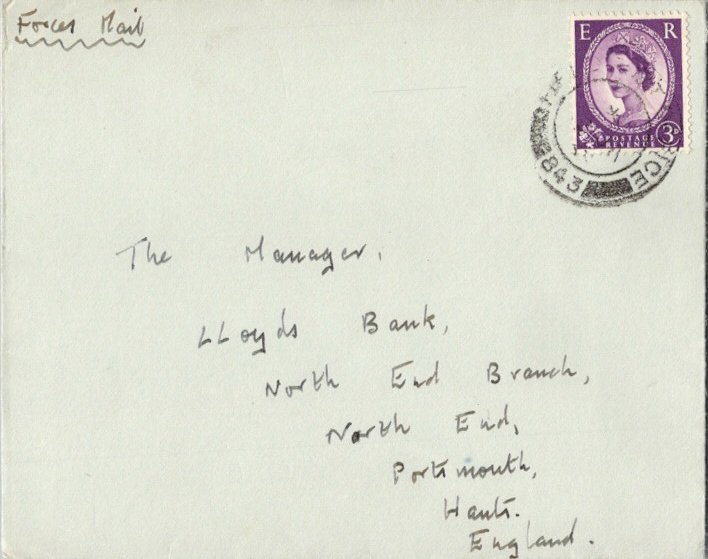 Forces Mail
E R
POSTAGE
REVENUE
3D
843
The Manager,
LLoyds Bank,
North End Branch,
North End,
Portsmouth,
Hants.
England.